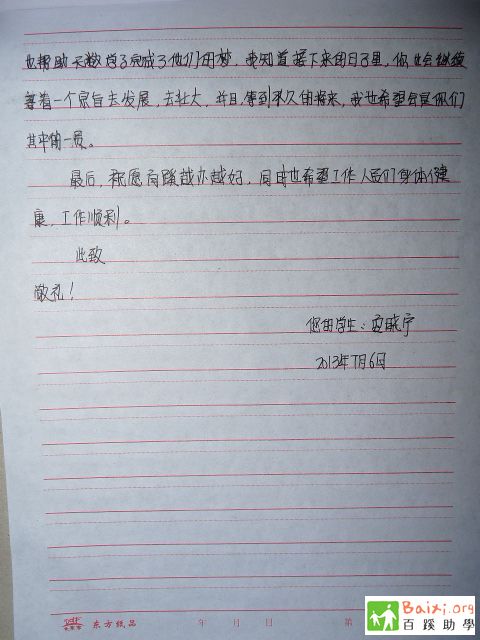 也帮助无数学子完成了他们的梦，我知道接下来的日子里，你也会继续
等着一个家自去发展，去壮大，并且，等到不久的将来，我也希望会是你们
其中的一员。
最后，祝愿百蹊越办越好，同时也希望工作人员们身体健
康，工作顺利。
此致
敬礼！
您的学生：安晓宁
2013年7月6日
东方纸品 年 月 日 第
Baixi.org
百蹊助學